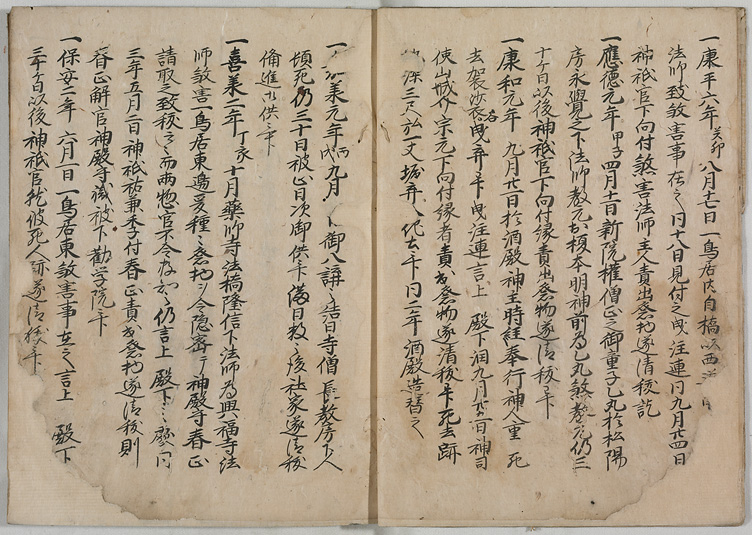 一康平六年癸卯八月十七日一鳥居内自橋以西
法師致敦害事在之同十八日見付之曳注連同九月廿四日
神祇官下向付煞害法師主人責出祭物遂清祓訖
一應徳元年甲子四月十一日新院権僧正之御童子乙丸於松陽
房永覺之下法師教元於榎本明神前為乙丸煞教元仍三
十ケ日以後神祇官下向付縁責出祭物遂清祓了
一康和元年九月廿一日於酒殿神主時経奉行神人重死
去袈裟曳弃了曳注連言上殿下同九月廿六日神司
使山城介宗元下向付縁者責出祭物遂清祓了死去跡
深三尺於一丈堀弃他去了同二年酒殿造替之
一嘉承元年丙戌九月 御八講 寺僧長教房下人
頓死仍三十日被止日次御供了満日数之後社家遂清祓
備進御供了
一嘉承二年丁亥十月藥師寺法橋隆信下法師為興福寺法
師敦害一鳥居東邊
請取之致祓之而両惣官不令 仍言上殿下
三年五月二日神祇祐兼 付春正責出祭物遂清祓則
春正解官神殿寺 被下勸学院了
一保安二年六月一日一鳥居東敦害事在之言上殿下
三十ケ日以後神祇官 彼死人跡遂清祓了